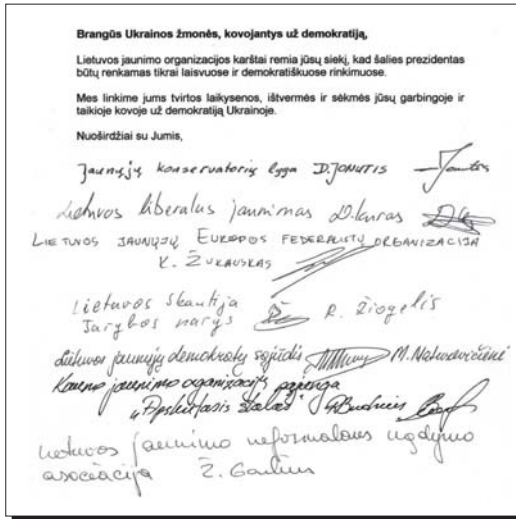 Brangūs Ukrainos žmonės, kovojantys už demokratiją,
Lietuvos jaunimo organizacijos karštai remia jūsų siekį, kad šalies prezidentas
būtų renkamas tikrai laisvuose ir demokratiškuose rinkimuose.
Mes linkime jums tvirtos laikysenos, ištvermės ir sėkmės jūsų garbingoje ir
taikioje kovoje už demokratiją Ukrainoje.
Nuoširdžiai su Jumis,
Jaunųjų konservatorių lyga D. JONUTIS
Lietuvos liberalus jaunimas
LIETUVOS JAUNŲJŲ EUROPOS FEDERALISTŲ ORGANIZACIJA
K. ŽUKAUSKAS
Lietuvos Skautija
Tarybos narys R. Žiogelis
Lietuvos jaunųjų demokratų sąjūdis M.
Kauno jaunimo organizacijų sąjunga
„Apskritasis stalas"
Lietuvos jaunimo neformalaus ugdymo
asociacija Ž.